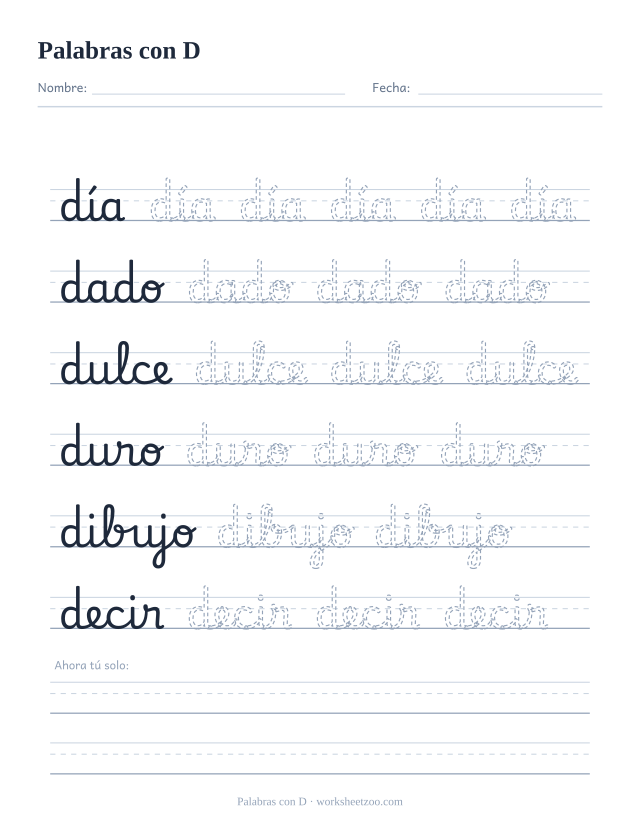 Palabras con D
Nombre: Fecha:
día día día día día día
dado dado dado dado
dulce dulce dulce dulce
duro duro duro duro
dibujo dibujo dibujo
decir decir decir decir
Ahora tú solo:
Palabras con D · worksheetzoo.com